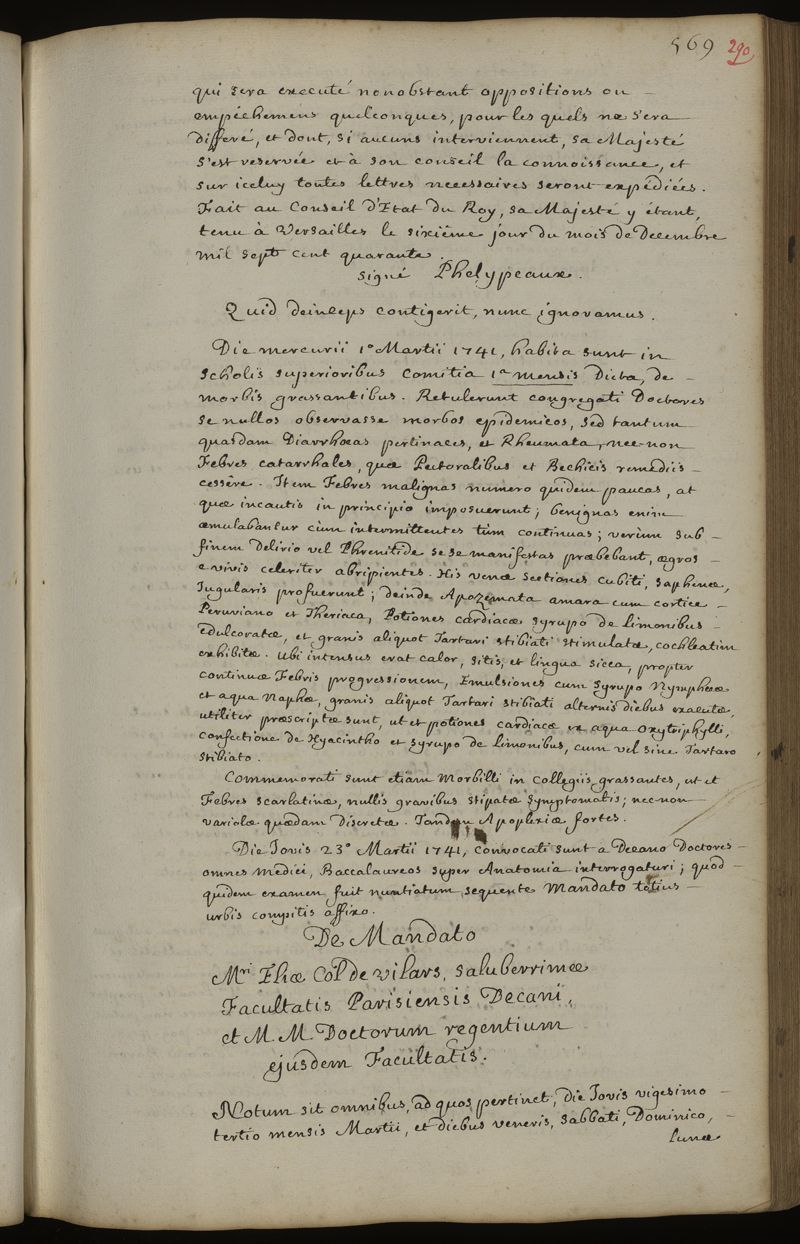 569 290
qui sera executé nonobstant oppositions ou
empéchemens quelconques, pour les quels ne sera
differé, et dont, si aucuns interviennent, sa Majesté
s'est reservée et à son conseil la connoissance, et
sur iceluy toutes lettres necessaires seront expédiées.
Fait au Conseil d'Etat du Roy, sa Majesté y étant,
tenu à Versailles le sixiême jour du mois de Decembre
mil sept cent quarante.
signé Phelypeaux.
Quid deinceps contigerit, nunc ignoramus.
Die mercurii 1º Martii 1741, habita sunt in
scholis superioribus Comitia 1ª mensis dicta, de
morbis grassantibus. Retulerunt congregati Doctores
se nullos observasse morbos epidemicos, sed tantum
quasdam Diarrhoeas pertinaces, et Rheumata, nec-non
Febres catarrhales, quæ Pectoralibus et Bechicis remediis
cessêre. Item Febres malignas numero quidem paucas, at
quæ incautis in principio imposuerunt; benignas enim
æmulabantur cùm intermittentes tùm continuas; verùm sub
finem delirio vel Phrenitide sese manifestas præbebant, ægros
e vivis celeriter abripientes. His venæ sectiones cubiti, saphenæ,
Jugularis profuerunt; deinde Apozemata amara cum cortice
Peruviano et Theriaca, Potiones cardiacæ syrupo de limonibus
edulcoratæ, et granis aliquot Tartari stibiati stimulatæ, cochleatim
exhibitæ. Ubi intensus erat calor, sitis, et lingua sicca, propter
continuæ Febris progressionem, Emulsiones cum syrupo Nympheæ
et aqua Naphæ, granis aliquot Tartari stibiati alternis diebus exacutæ,
utiliter præscriptæ sunt, ut et potiones cardiacæ ex aqua oxytriphylli,
confectione de Hyacintho et syrupo de limonibus, cum vel sine Tartaro
stibiato.
Commemorati sunt etiam Morbilli in Collegiis grassantes, ut et
Febres scarlatinæ, nullis gravibus stipatæ symptomatis; nec-non
variolæ quædam discretæ. Tandem Apoplexiæ fortes.
Die Jovis 23º Martii 1741, Convocati sunt a Decano Doctores
omnes medici, Baccalaureos super Anatomia interrogaturi; quod
quidem examen fuit nuntiatum sequente Mandato totius
urbis compitis affixo.
De Mandato
Mri Eliæ Col de vilars, saluberrimæ
Facultatis Parisiensis Decani,
et M. M. Doctorum regentium
ejusdem Facultatis.
Notum sit omnibus, ad quos pertinet, die Jovis vigesimo
tertio mensis Martii, et diebus veneris, sabbati, Dominico,
lunæ